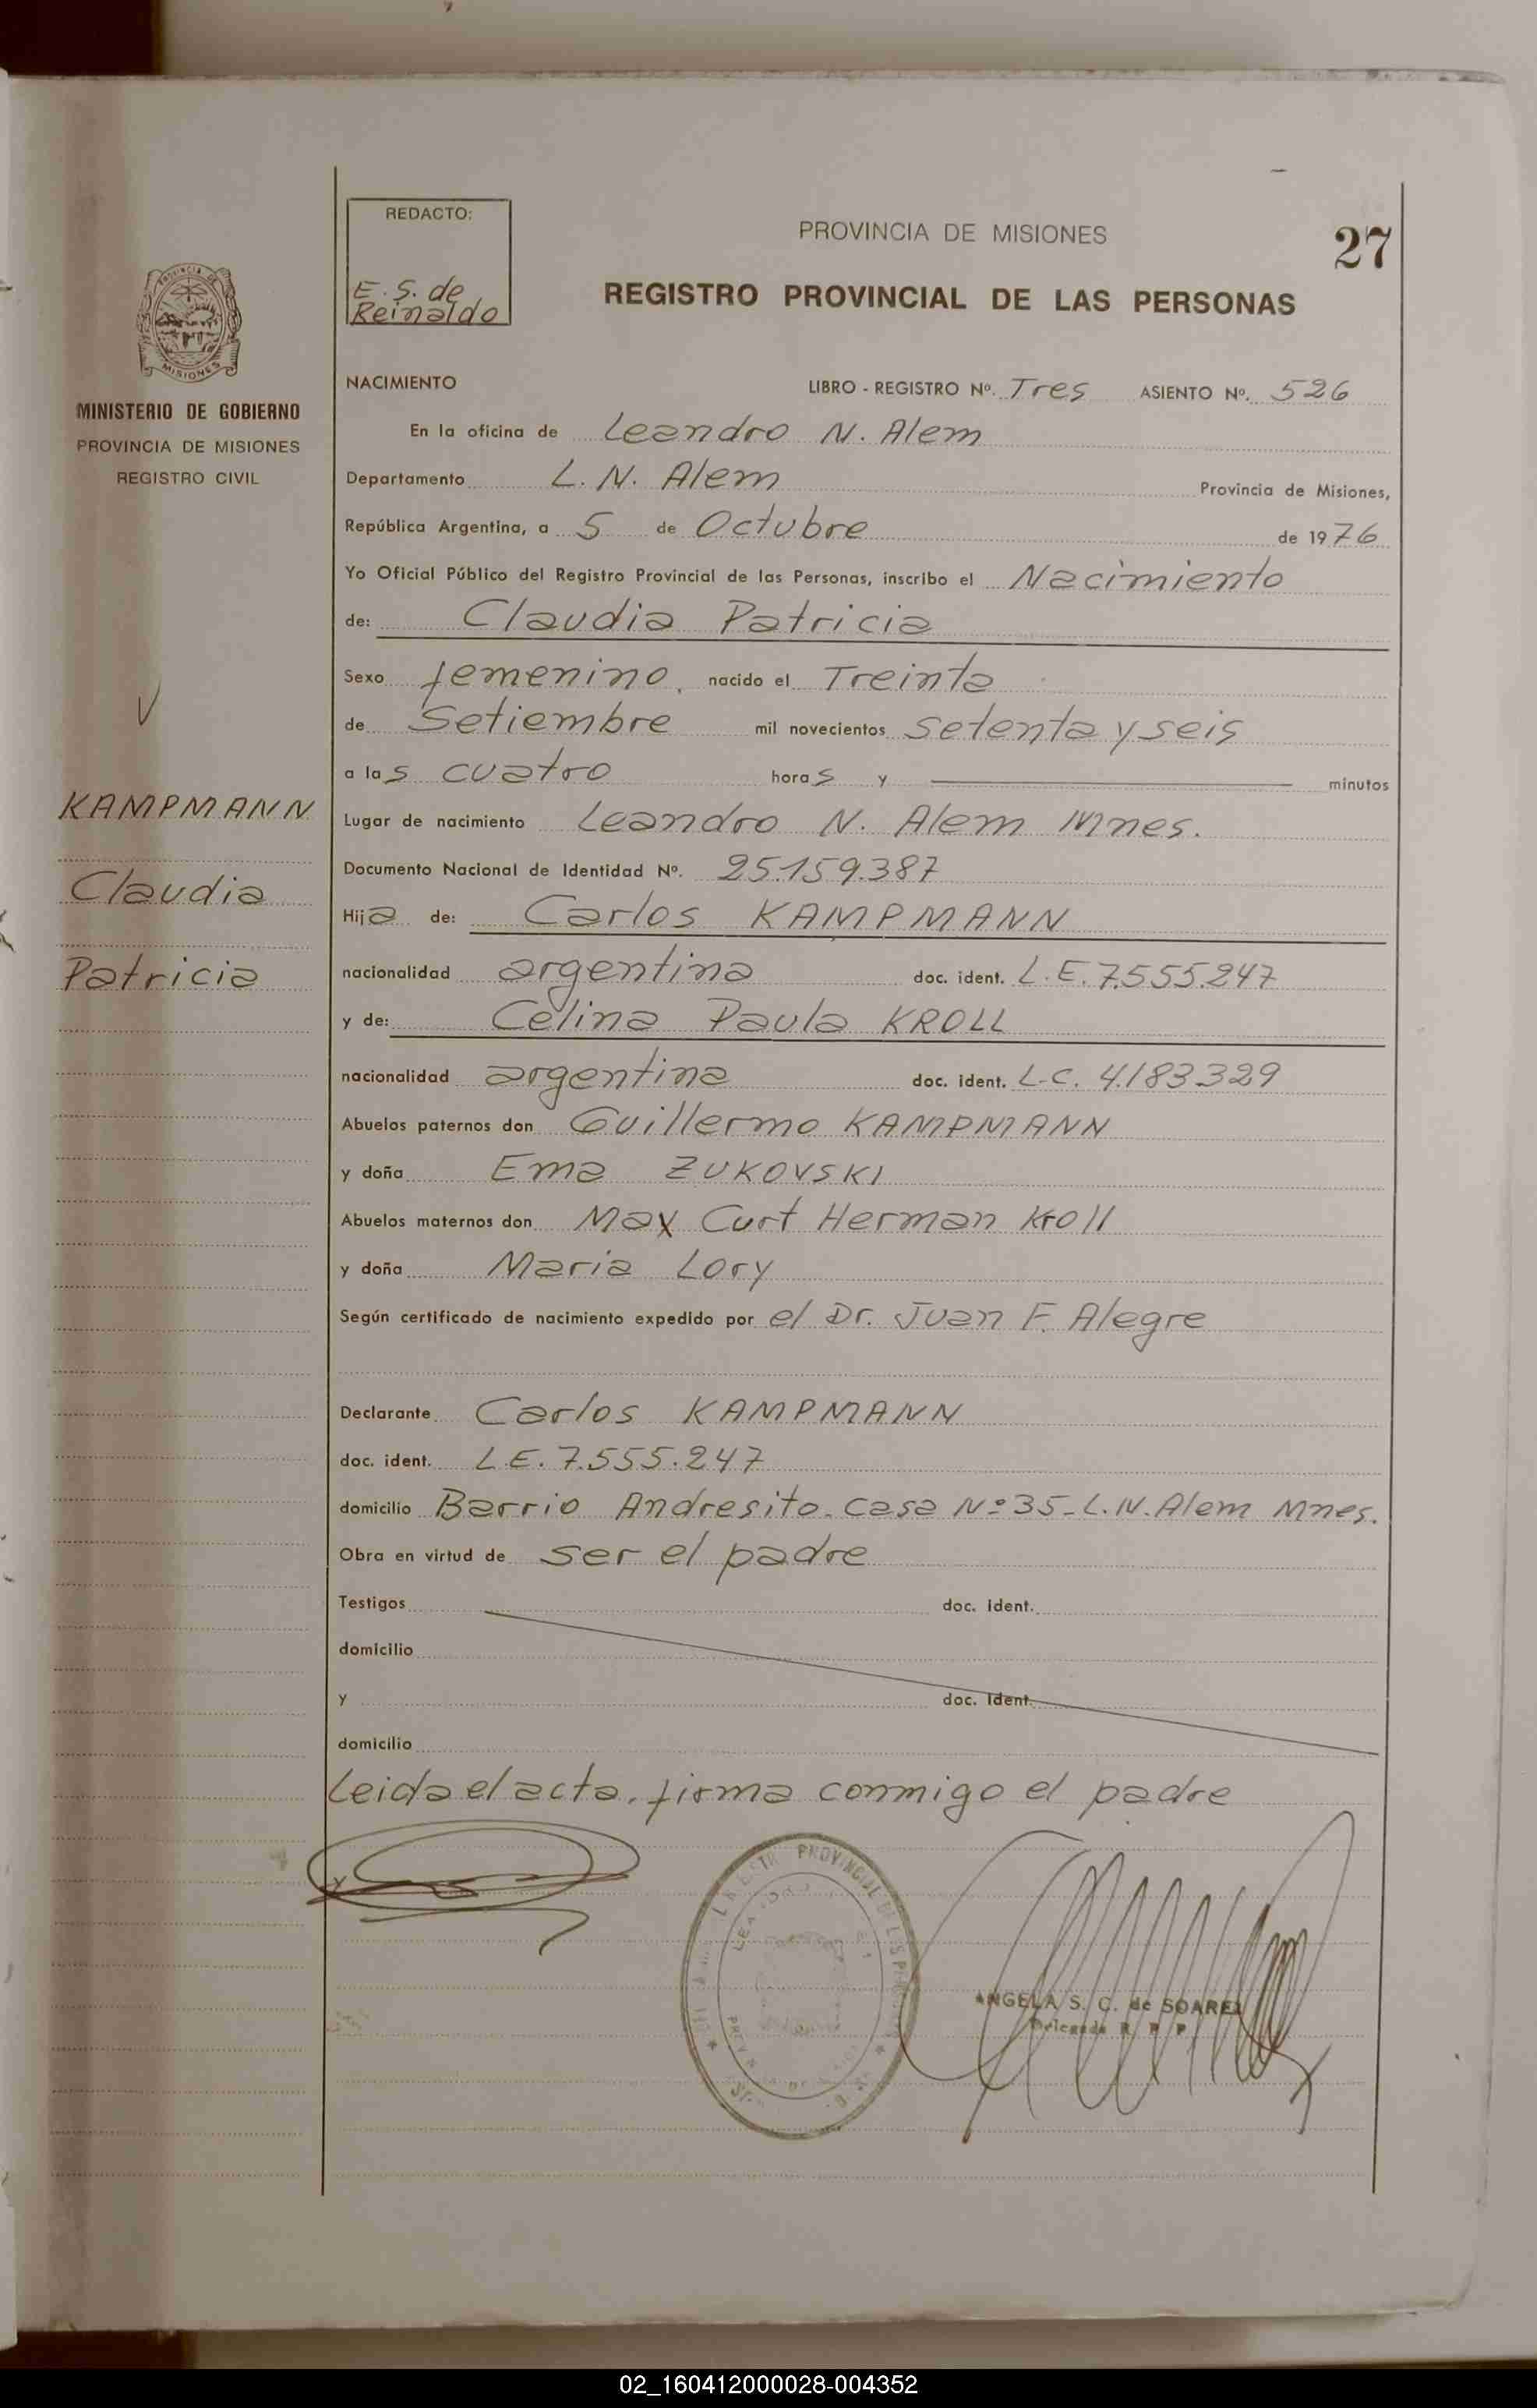 REDACTO:
E. S. de
Reinaldo
PROVINCIA DE MISIONES
27
REGISTRO PROVINCIAL DE LAS PERSONAS
PROVINCIA DE
MISIONES
MINISTERIO DE GOBIERNO
PROVINCIA DE MISIONES
REGISTRO CIVIL
KAMPMANN
Claudia
Patricia
NACIMIENTO LIBRO - REGISTRO Nº. Tres ASIENTO Nº. 526
En la oficina de Leandro N. Alem
Departamento L. N. Alem Provincia de Misiones,
República Argentina, a 5 de Octubre de 1976
Yo Oficial Público del Registro Provincial de las Personas, inscribo el Nacimiento
de: Claudia Patricia
Sexo femenino, nacido el Treinta
de Setiembre mil novecientos setenta y seis
a las cuatro horas y minutos
Lugar de nacimiento Leandro N. Alem Mnes.
Documento Nacional de Identidad Nº. 25.159.387
Hija de: Carlos KAMPMANN
nacionalidad argentina doc. ident. L.E. 7.555.247
y de: Celina Paula KROLL
nacionalidad argentina doc. ident. L.C. 4.183.329
Abuelos paternos don Guillermo KAMPMANN
y doña Ema ZUKOVSKI
Abuelos maternos don Max Curt Herman Kroll
y doña Maria Lory
Según certificado de nacimiento expedido por el Dr. Juan F. Alegre
Declarante Carlos KAMPMANN
doc. ident. L.E. 7.555.247
domicilio Barrio Andresito. Casa Nº 35 - L. N. Alem Mnes.
Obra en virtud de ser el padre
Testigos doc. ident.
domicilio
y doc. ident.
domicilio
Leida el acta, firma conmigo el padre
ANGELA S. C. de SOAREZ
Delegada R P P
02_160412000028-004352